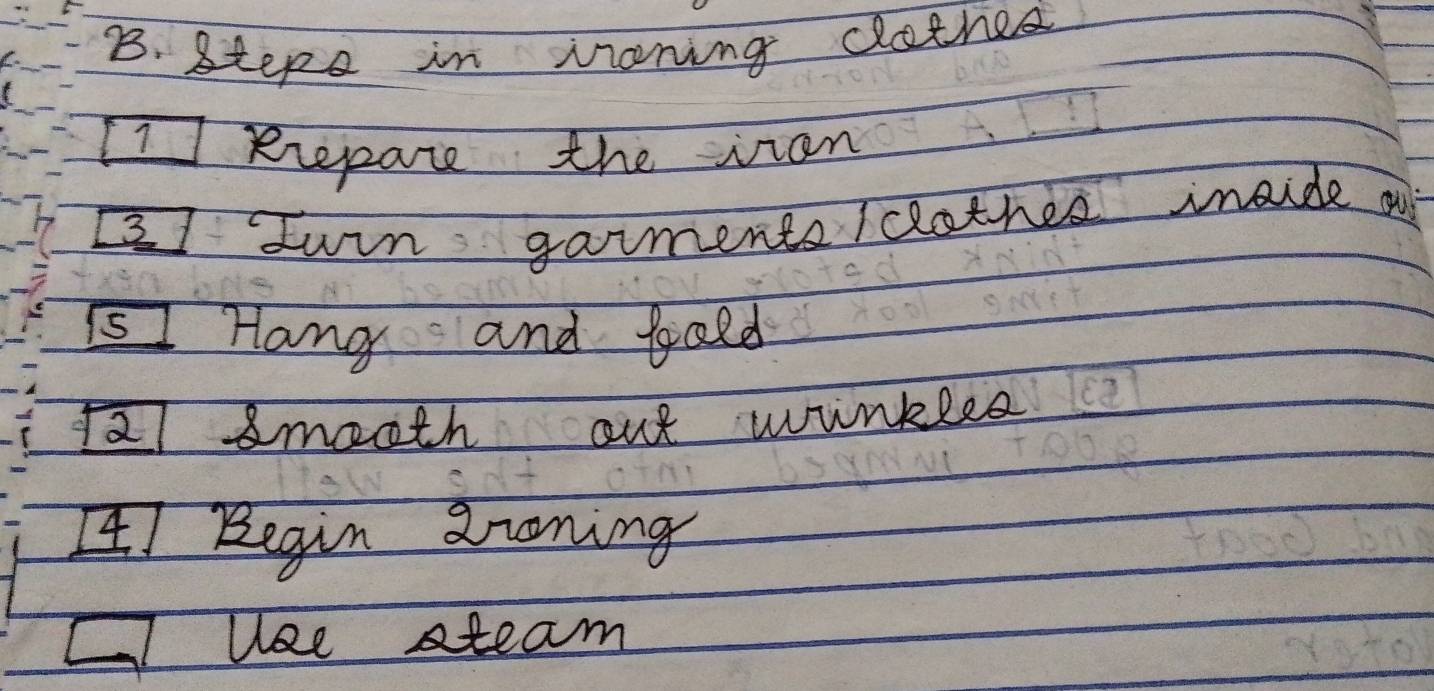 B. Steps in ironing clothes
1 Prepare the iron
3 Turn garments/clothes inside out
5 Hang and fold
2 Smooth out wrinkles
4 Begin Ironing
Use steam